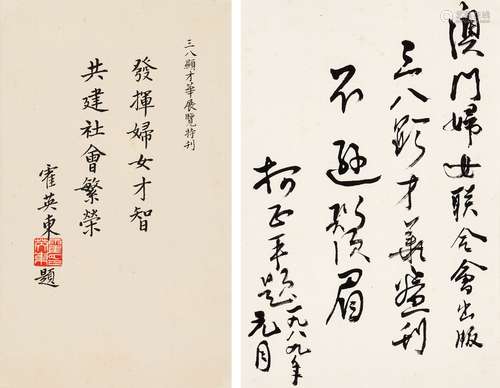 三八顯才華展覽特刊
發揮婦女才智
共建社會繁榮
霍英東題
澳門婦女聯合會出版
三八顯才華刊
不遜鬚眉
柯正平題一九八九年
元月